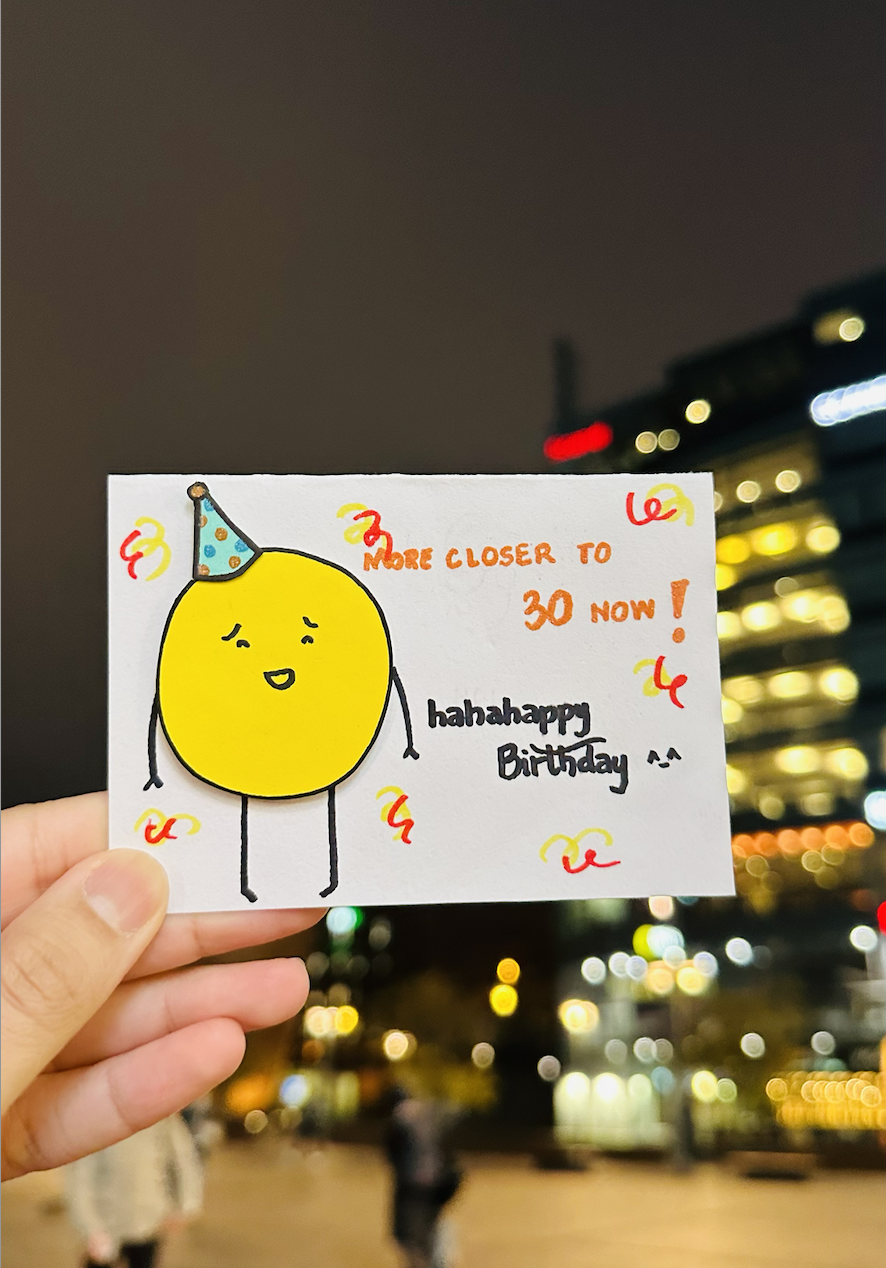 MORE CLOSER TO
30 NOW!
hahahappy
Birthday ^-^